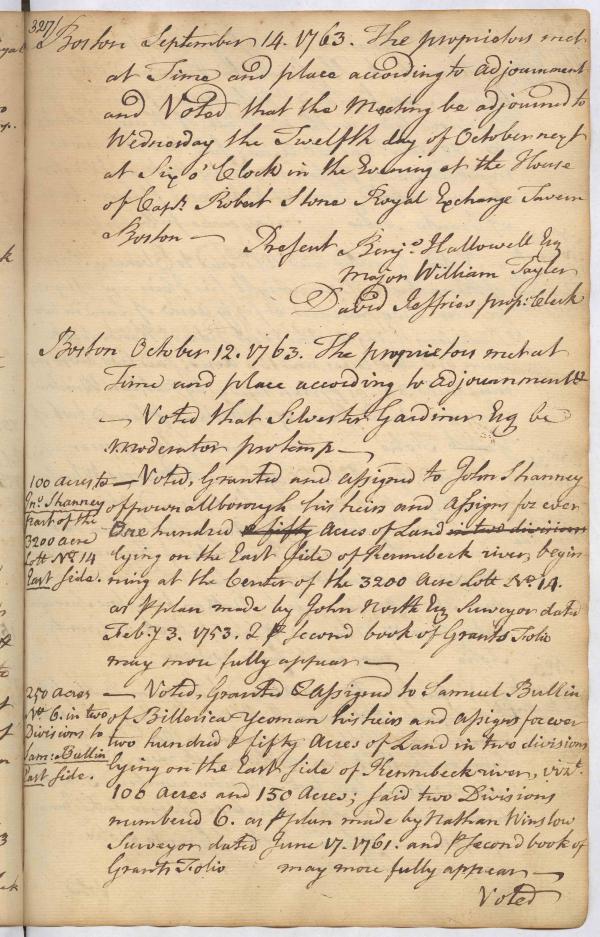 327
Boston September 14. 1763. The proprietors met
at Time and place according to adjournment
and Voted that the Meeting be adjourned to
Wednesday the Twelfth day of October next
at Six o'Clock in the Evening at the House
of Capt. Robert Stone Royal Exchange Tavern
Boston — Present Benj.ª Hallowell Esq
Major William Tayler
David Jeffries prop.s Clerk
Boston October 12. 1763. The proprietors met at
Time and place according to adjournment
— Voted that Silvester Gardiner Esq be
Moderator protemp —
100 acres to
Jn.º Shanney
part of the
3200 acre
Lott No. 14
East Side.
— Voted, Granted and assigned to John Shanney
of pownallborough his heirs and assigns for ever
One hundred & fifty Acres of Land in two divisions
lying on the East Side of Kennebeck river, begin
ning at the Center of the 3200 Acre Lott No. 14.
as p plan made by John North Esq Surveyor dated
Feb.y 3. 1753. & p Second book of Grants Folio
may more fully appear —
250 acres
No. 6. in two
Divisions to
Sam: Bullin
East Side.
— Voted, Granted & assigned to Samuel Bullin
of Billerica Yeoman his heirs and assigns for ever
two hundred & fifty Acres of Land in two divisions
lying on the East Side of Kennebeck river, vizt.
100 acres and 150 Acres; said two Divisions
numbered 6. as p plan made by Nathan Winslow
Surveyor dated June 17. 1761. and p Second book of
Grants Folio may more fully appear —
Voted